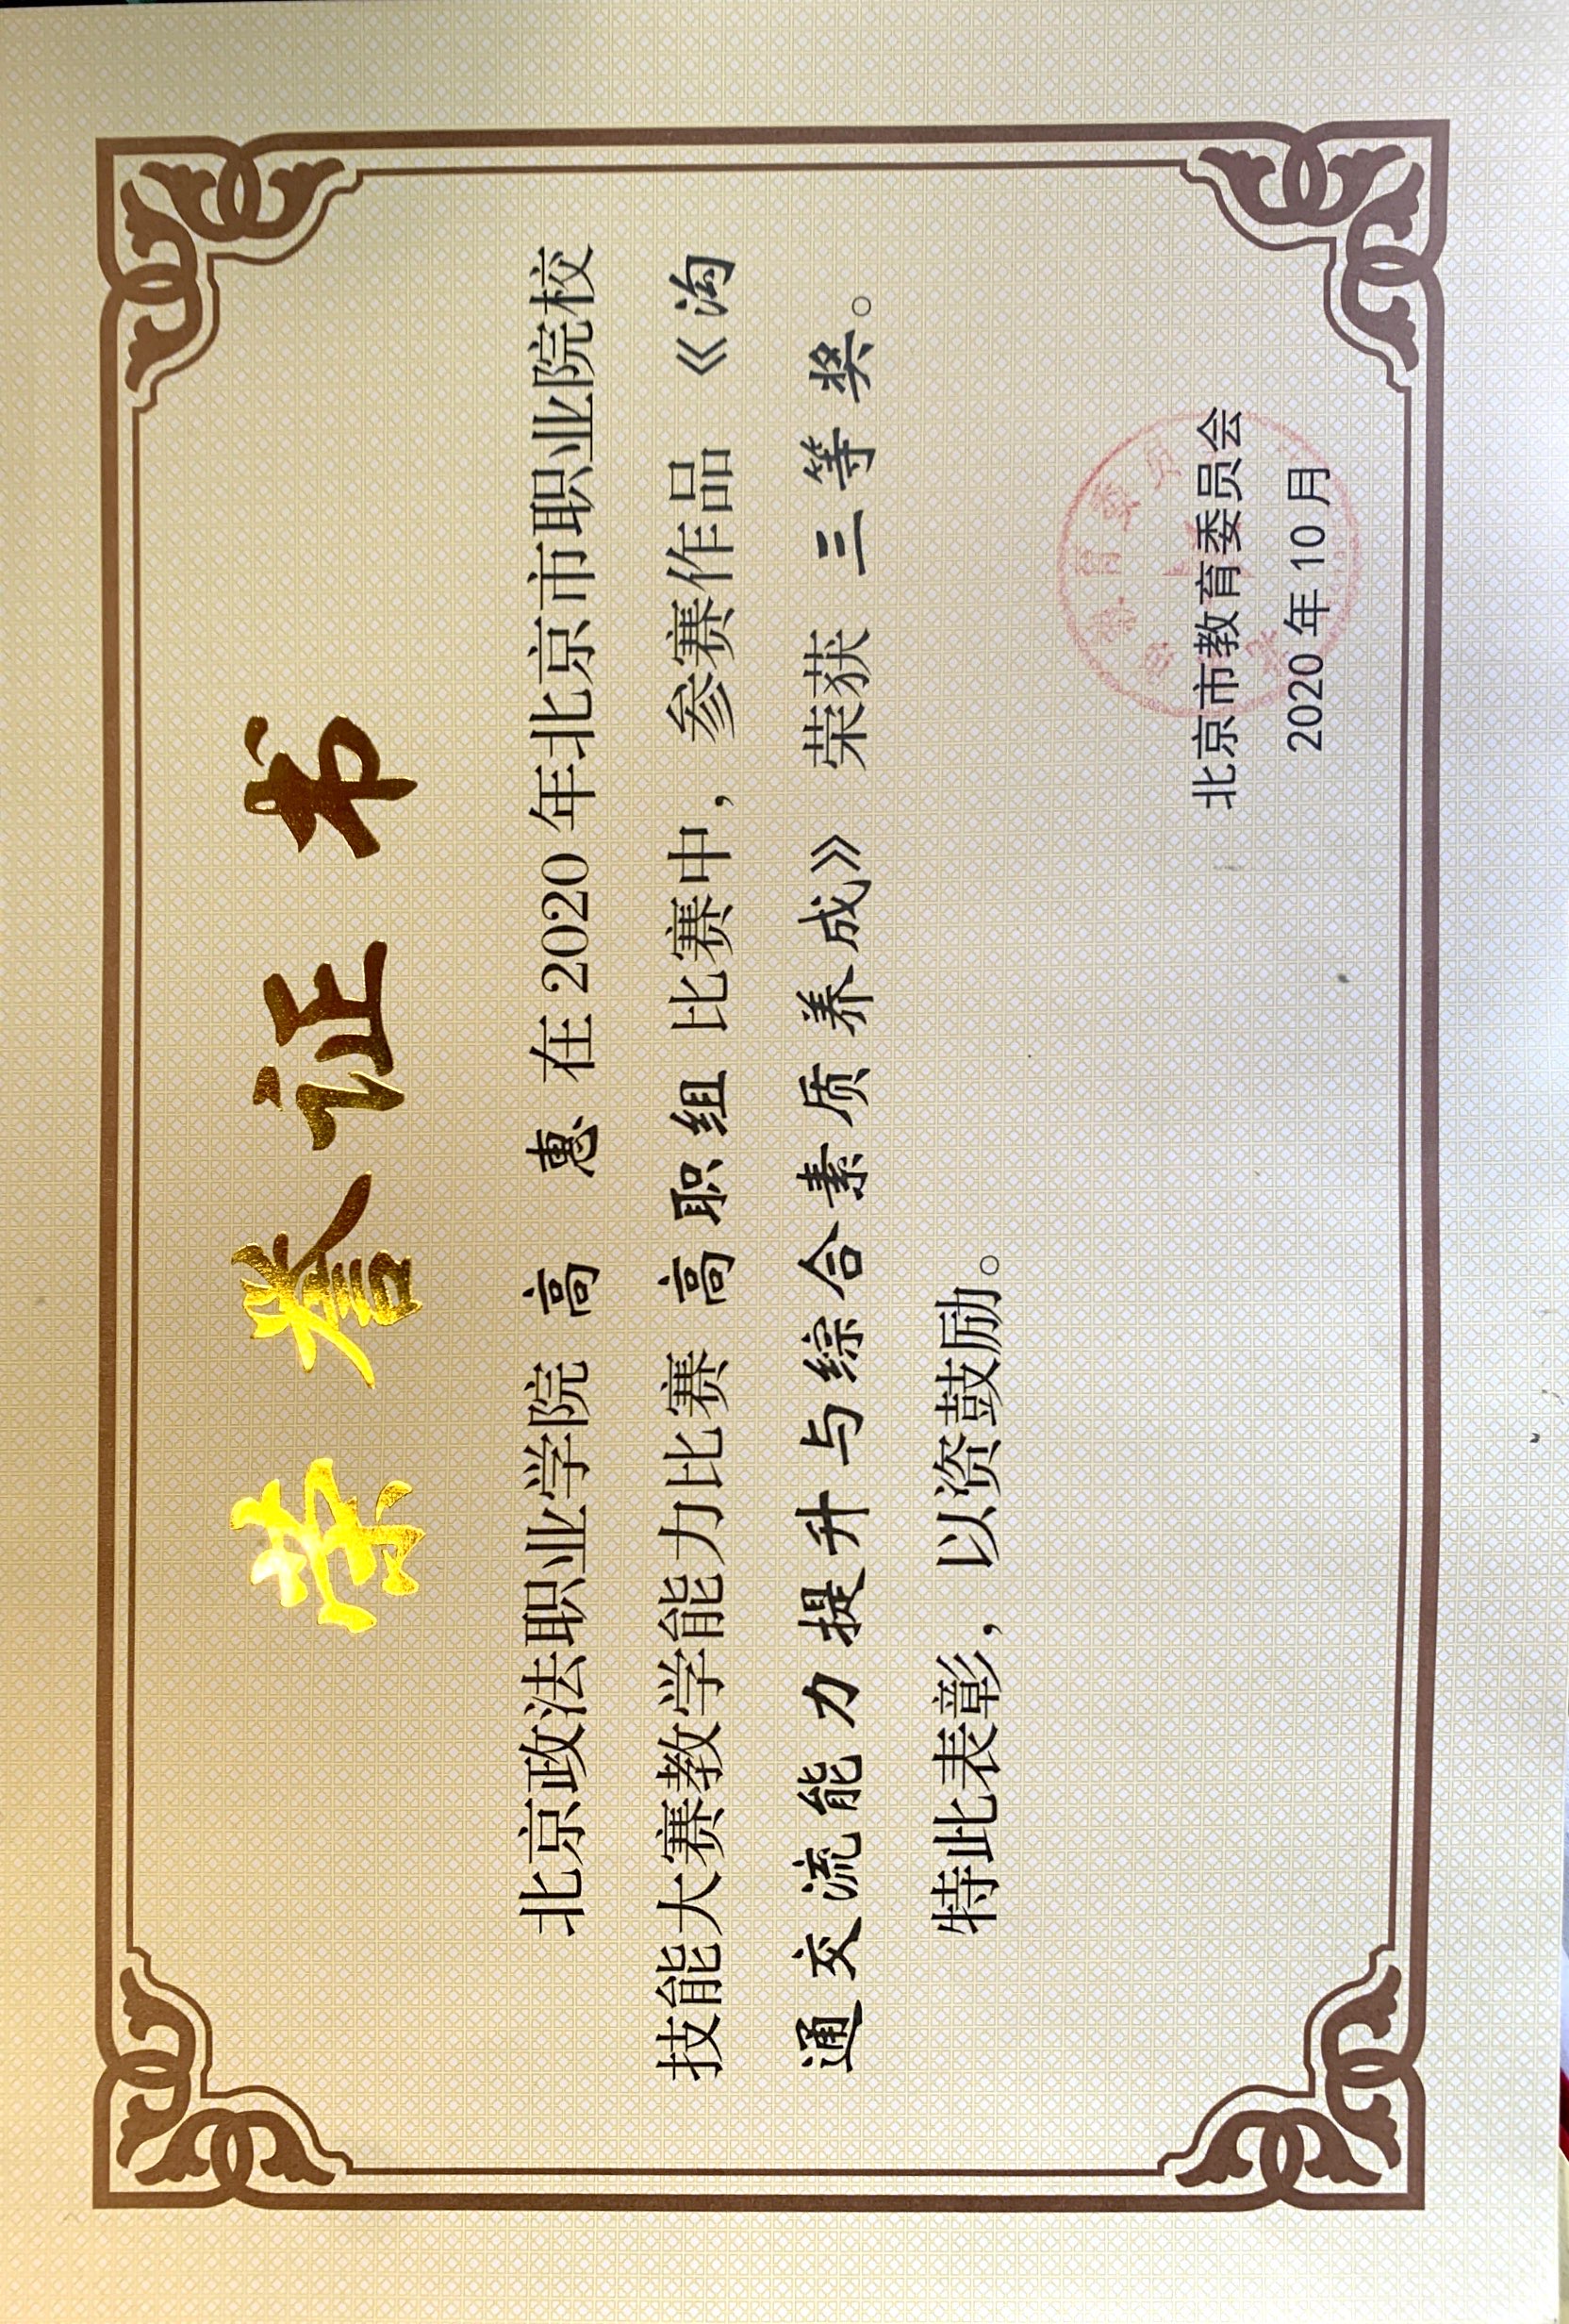 荣誉证书
北京政法职业学院 高 惠 在 2020 年北京市职业院校
技能大赛教学能力比赛 高职组 比赛中，参赛作品《沟
通交流能力提升与综合素质养成》 荣获 三等奖。
特此表彰，以资鼓励。
北京市教育委员会
2020 年 10 月